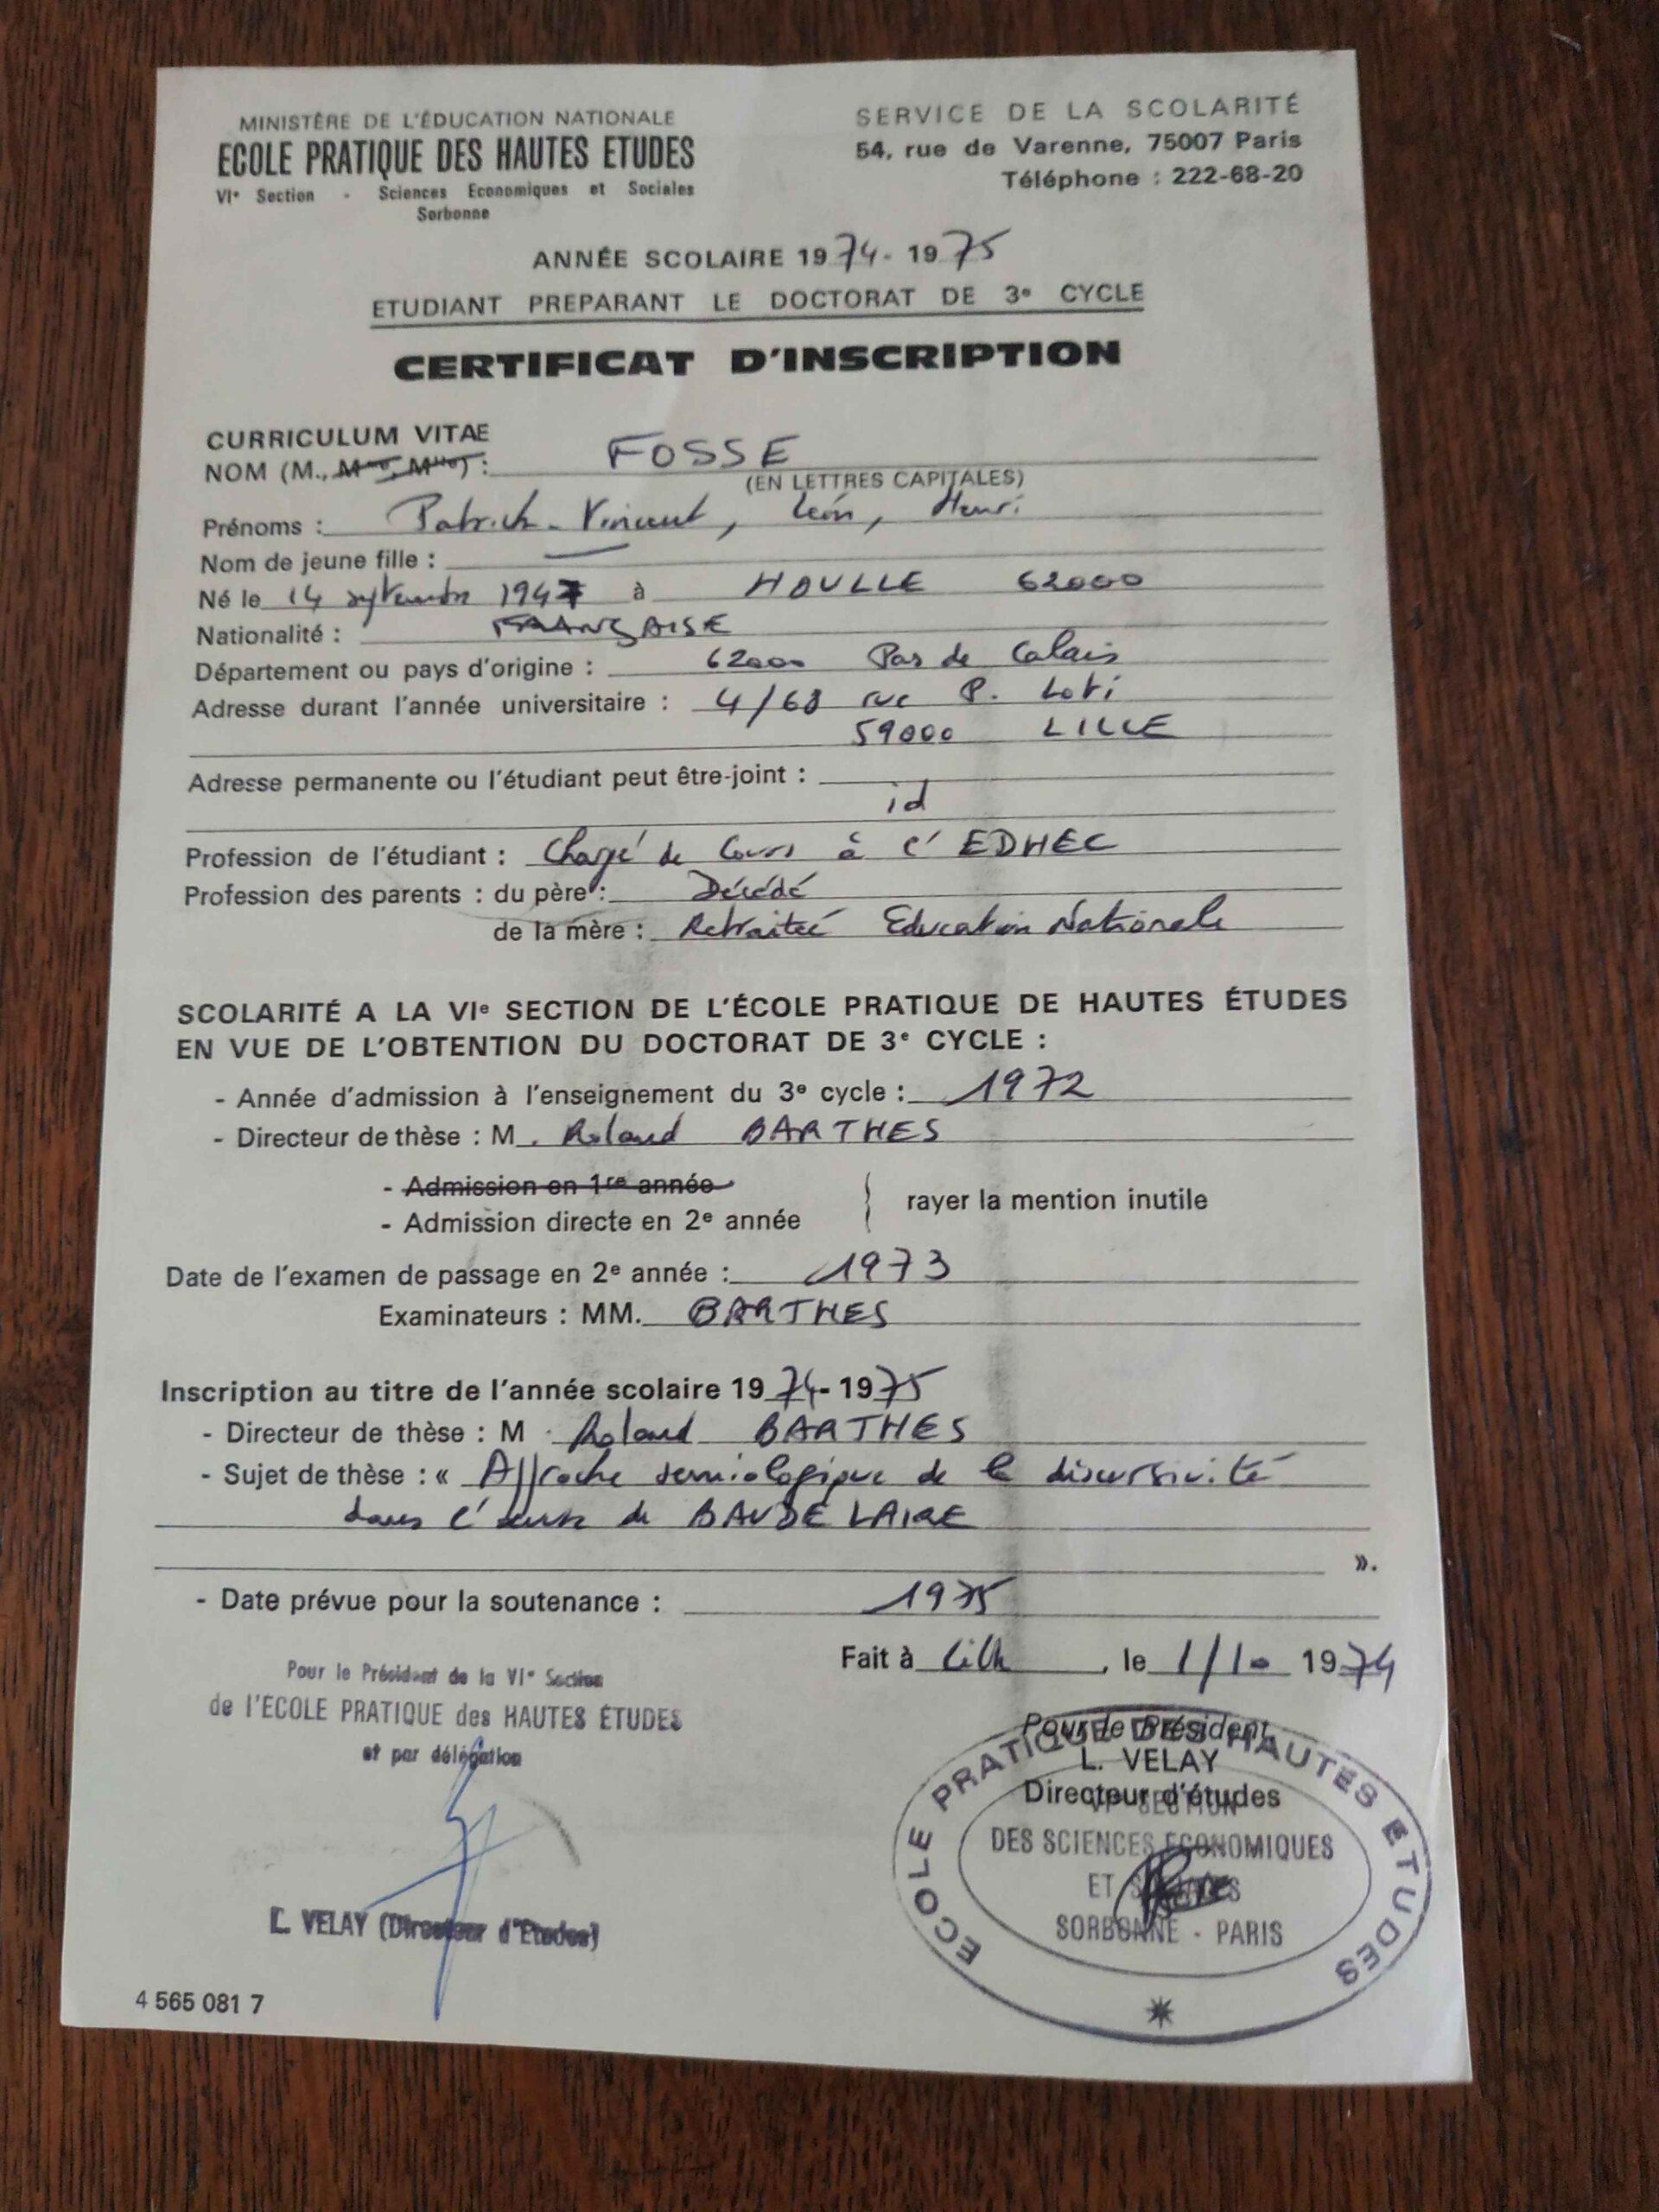 MINISTÈRE DE L'ÉDUCATION NATIONALE
ECOLE PRATIQUE DES HAUTES ETUDES
VIe Section - Sciences Economiques et Sociales
Sorbonne
SERVICE DE LA SCOLARITÉ
54, rue de Varenne, 75007 Paris
Téléphone : 222-68-20
ANNÉE SCOLAIRE 1974-1975
ETUDIANT PREPARANT LE DOCTORAT DE 3e CYCLE
CERTIFICAT D'INSCRIPTION
CURRICULUM VITAE
NOM (M., Mme, Mlle) : FOSSE
(EN LETTRES CAPITALES)
Prénoms : Patrick-Vincent, Léon, Henri
Nom de jeune fille : —
Né le 14 septembre 1947 à HOULLE 62000
Nationalité : FRANÇAISE
Département ou pays d'origine : 62000 Pas de Calais
Adresse durant l'année universitaire : 4/68 rue P. Loti
59000 LILLE
Adresse permanente ou l'étudiant peut être-joint :
id
Profession de l'étudiant : Chargé de Cours à l'EDHEC
Profession des parents : du père : Décédé
de la mère : Retraitée Education Nationale
SCOLARITÉ A LA VIe SECTION DE L'ÉCOLE PRATIQUE DE HAUTES ÉTUDES
EN VUE DE L'OBTENTION DU DOCTORAT DE 3e CYCLE :
- Année d'admission à l'enseignement du 3e cycle : 1972
- Directeur de thèse : M. Roland BARTHES
- Admission en 1re année
- Admission directe en 2e année
rayer la mention inutile
Date de l'examen de passage en 2e année : 1973
Examinateurs : MM. BARTHES
Inscription au titre de l'année scolaire 1974-1975
- Directeur de thèse : M. Roland BARTHES
- Sujet de thèse : « Approche semiologique de la discursivité
dans l'œuvre de BAUDELAIRE
».
- Date prévue pour la soutenance : 1975
Fait à Lille, le 1/10 1974
Pour le Président de la VIe Section
de l'ÉCOLE PRATIQUE des HAUTES ÉTUDES
et par délégation
L. VELAY (Directeur d'Etudes)
Pour le Président,
L. VELAY
Directeur d'études
ECOLE PRATIQUE DES HAUTES ETUDES
VIe SECTION
DES SCIENCES ECONOMIQUES
ET SOCIALES
SORBONNE - PARIS
4 565 081 7